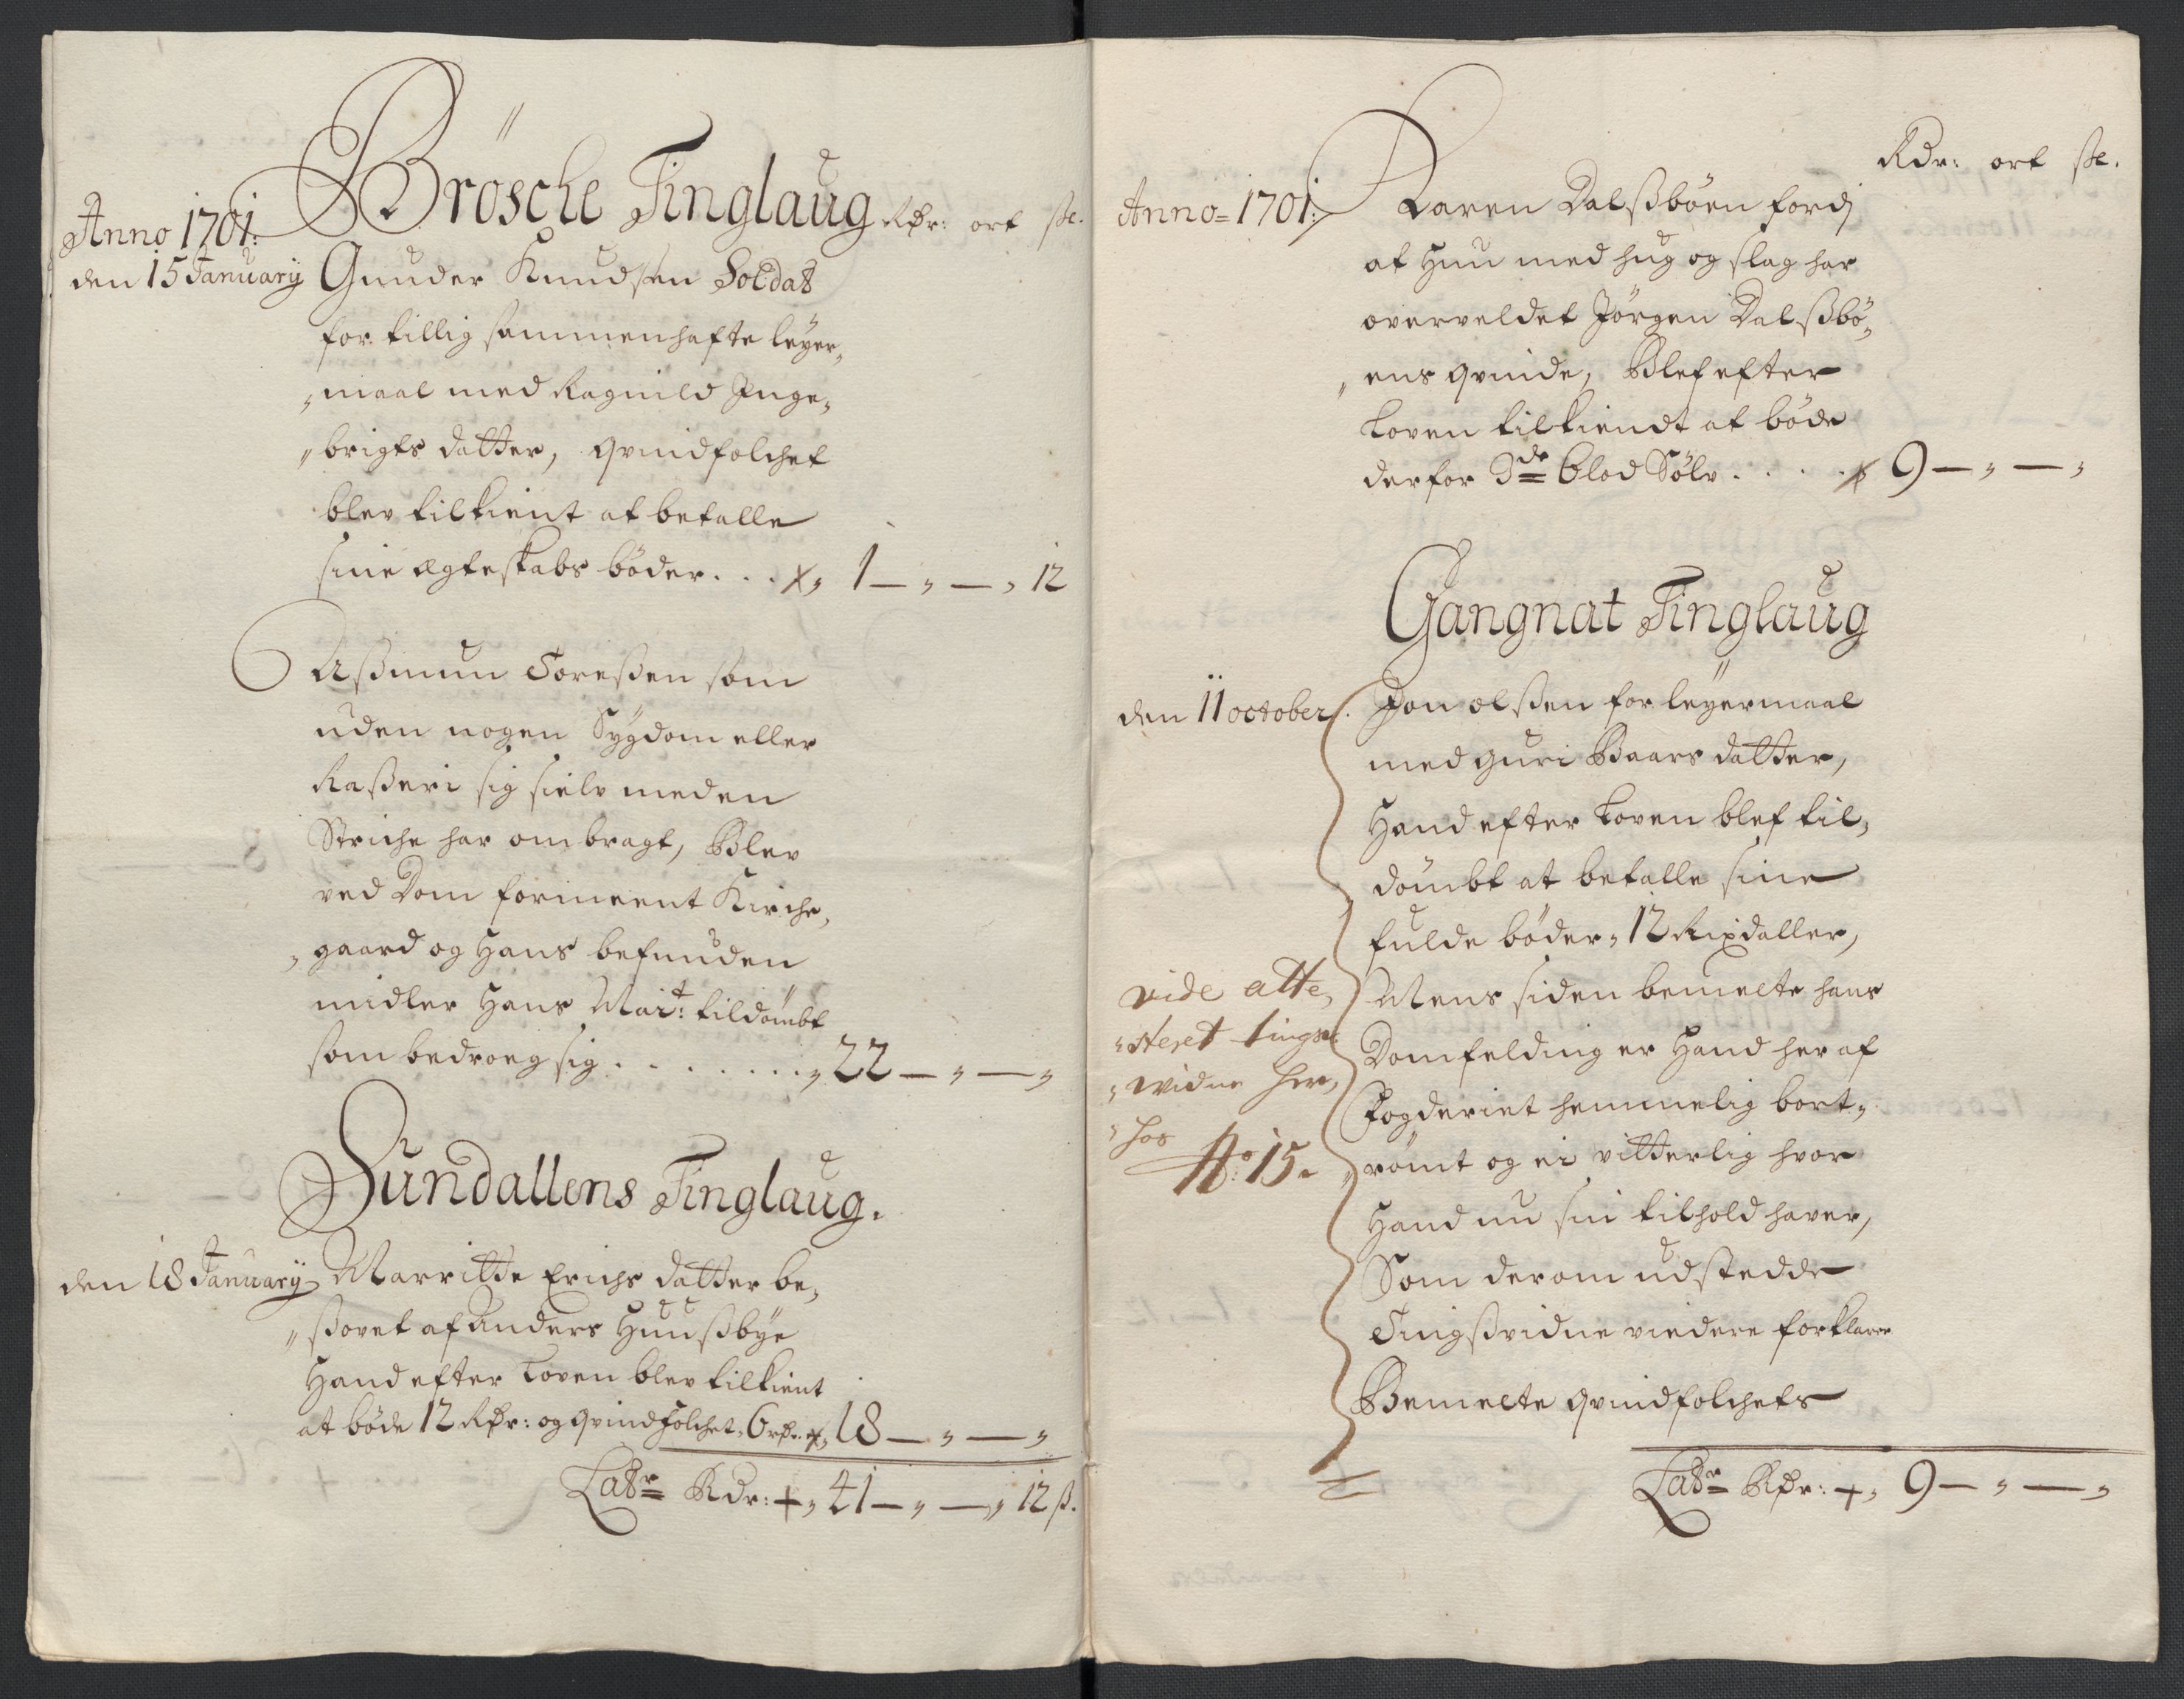 Brösche Tinglaug Rdr: ort sk.
Anno 1701:
den 15 January Gunder Knudsen Soldat
for tillig sammenhafte leyer„
„maal med Ragnild Inge„
„brigts datter, qvindfolchet
blev tilkient at betalle
sine egteskabs böder . . . „ 1 — „ — „ 12
Assmun Toressen som
uden nogen Sÿgdom eller
Rasseri sig sielv med en
Striche har ombragt, Blev
ved Dom formeent Kirche„
„gaard og Hans befunden
midler Hans Mai:t tildömbt
som bedroeg sig . . . . . . . . „ 22 — „ — „
Sundallens Tinglaug.
den 18 January Marritte Erichs datter be„
„sovet af Anders Huussbÿe
Hand efter Loven blev tilkient
at böde 12 Rdr: og qvindfolchet 6 rd. „ 18 — „ — „
Latr Rdr: „ 41 — „ — „ 12 s.
Rdr: ort sk.
Anno = 1701: Karen Dalssböen fordj
at Hun med hug og slag har
overveldet Jörgen Dalssbö„
„ens qvinde, Blef efter
Loven tilkiendt at böde
derfor 3de blod Sölv . . . . . 9 — „ — „
Gangnat Tinglaug
den 11 october. Jon olssen for leÿermaal
med Guri Baars datter,
Hand efter Loven blef til„
dömbt at betalle sine
fulde böder „ 12 Rixdaller,
Mens siden bemelte hans
Domfelding er Hand her af
Fogderiet hemmelig bort„
„römt og ei vitterlig hvor
Hand nu sin tilhold haver,
Som derom udstedde
Tingssvidne viedere forklarer
Bemelte qvindfolchets
vide atte„
„steret tings„
„widne her„
„hos
No: 15.
Latr Rdr: „ 9 — „ — „